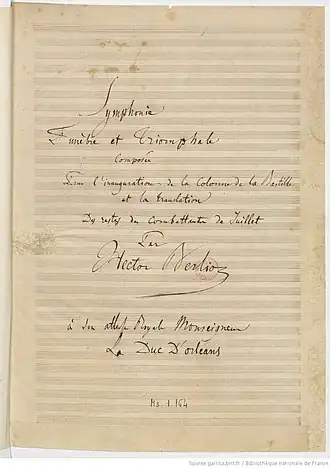 Symphonie
Funèbre et Triomphale
composée
Pour l'inauguration de la Colonne de la Bastille
et la translation
Des restes des Combattants de Juillet
Par
Hector Berlioz
à Son altesse Royale Monseigneur
Le Duc D'orléans
Ms. 1.164
Source gallica.bnf.fr / Bibliothèque nationale de France